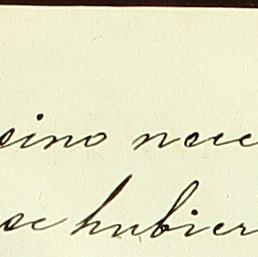 sino nece
se hubier